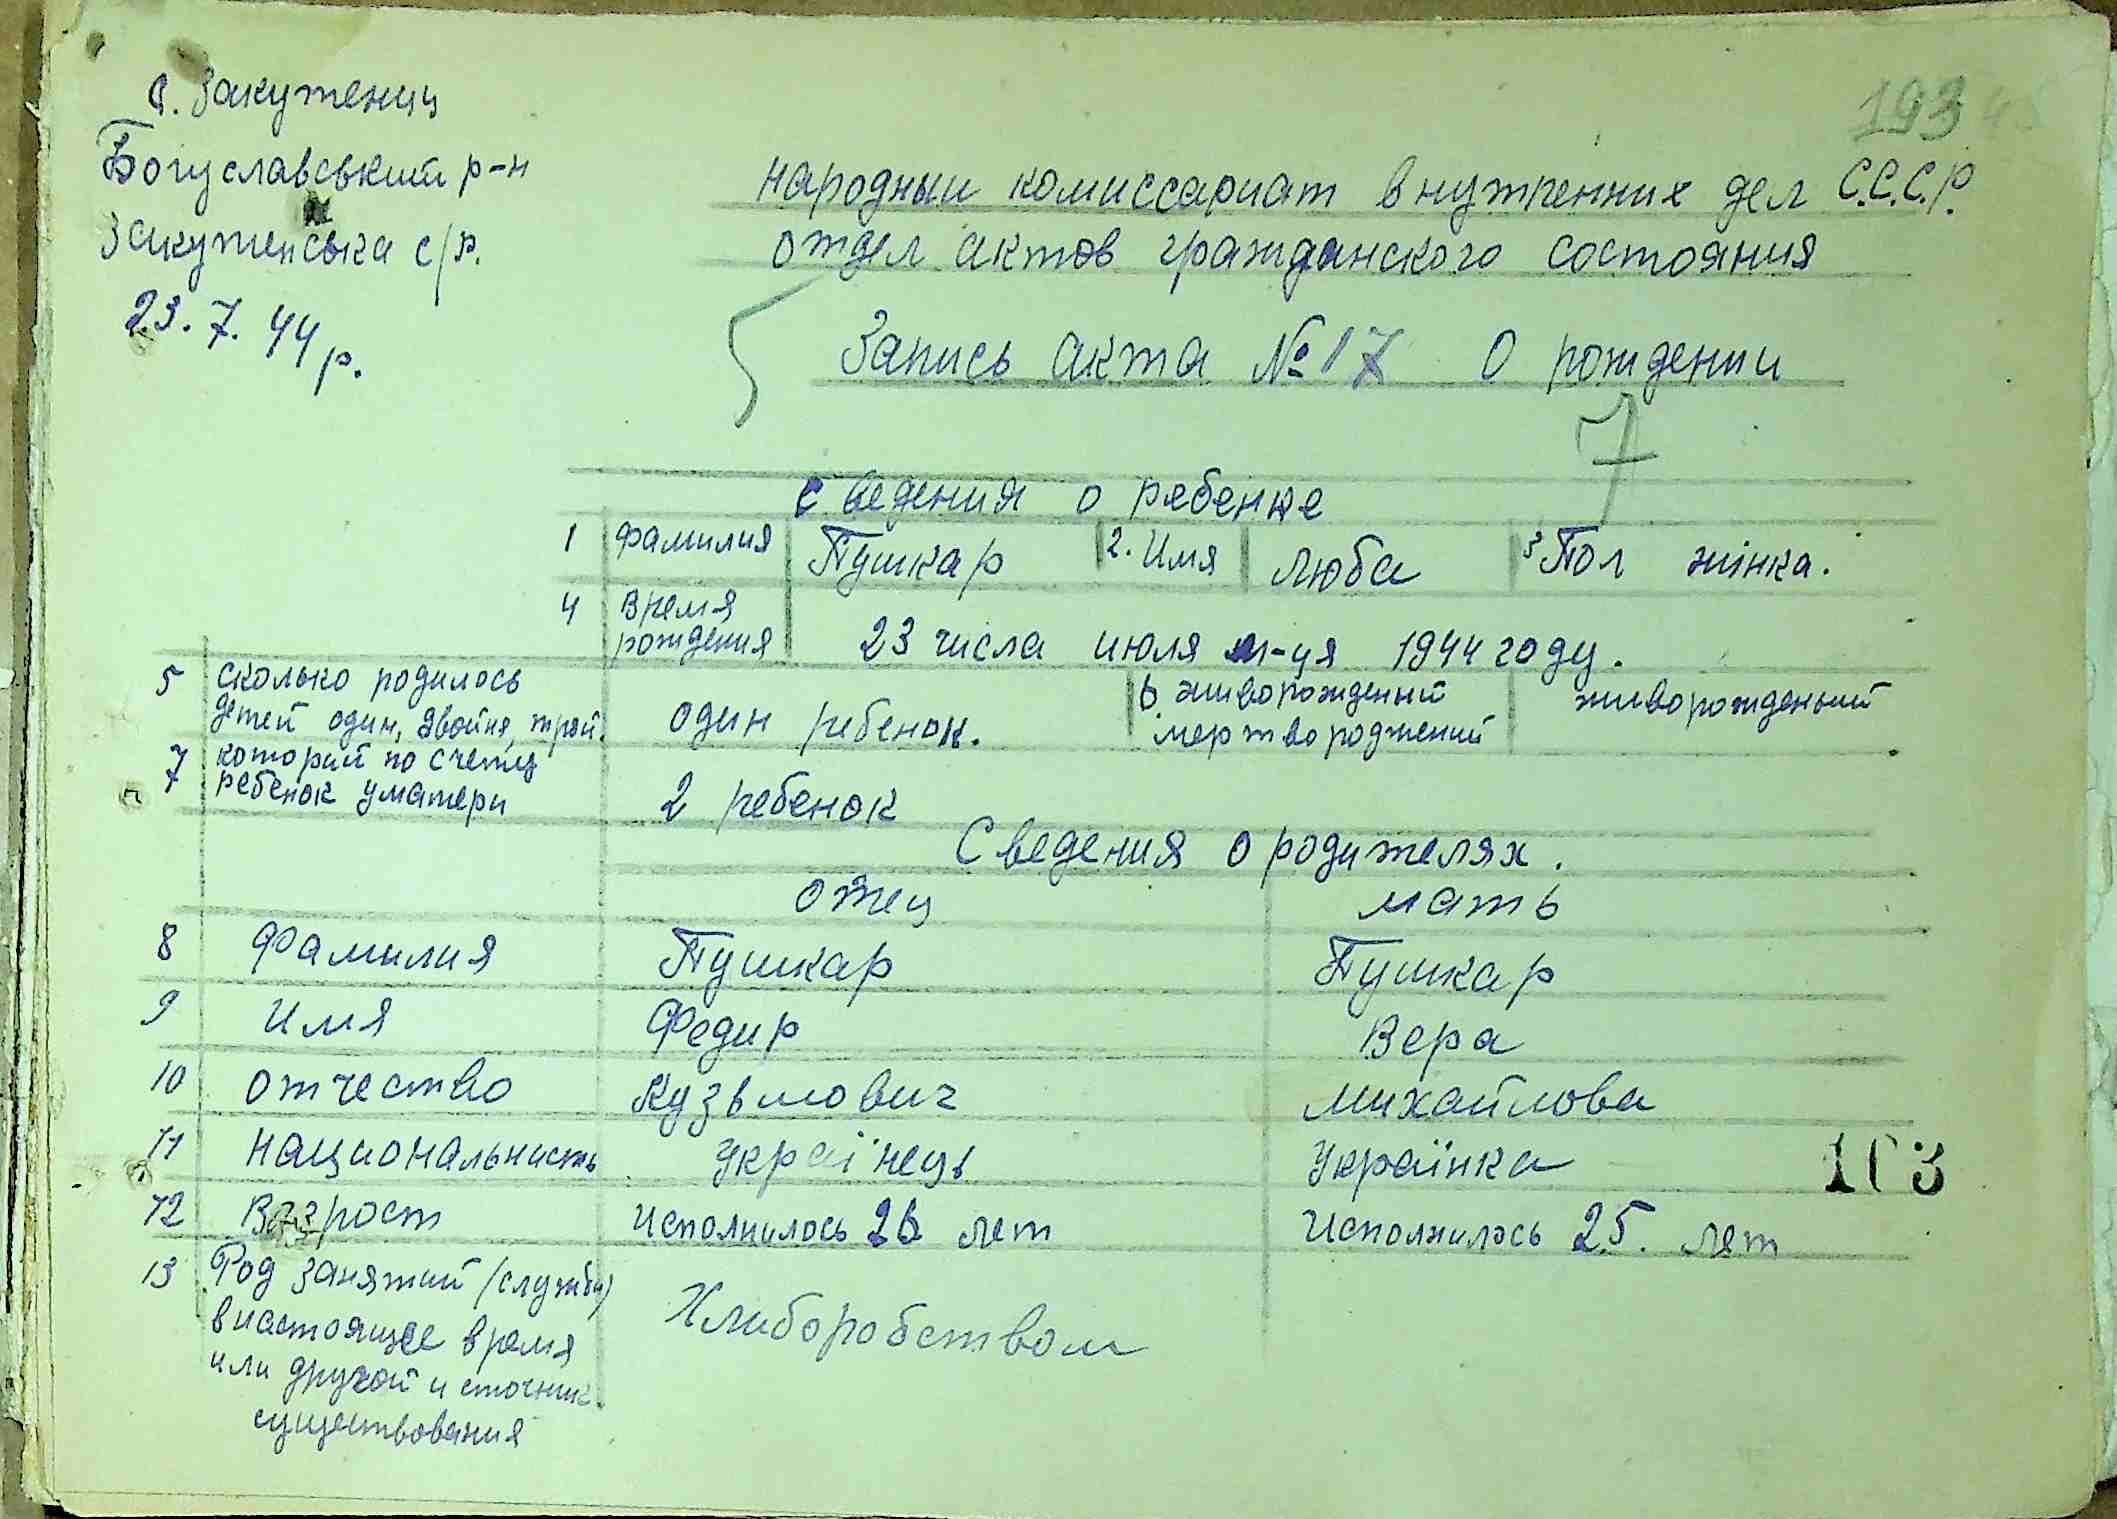 с. Закутенци
Богуславський р-н
Закутенська с/р.
23.7.44 р.
193
народный комиссариат внутренних дел С.С.С.Р.
отдел актов гражданского состояния
Запись акта № 17 О рождении
7
Сведения о ребенке
1 Фамилия Пушкар 2. Имя Люба 3 Пол жінка.
4 Время рождения 23 числа июля м-ця 1944 году.
5 сколько родилось
детей один, двойня, трой. один ребенок. 6. живорожденый
мертвороджений живорожденый
7 которий по счету
ребенок у матери 2 ребенок
Сведения о родителях.
отец мать
8 Фамилия Пушкар Пушкар
9 имя Федир Вера
10 отчество Кузьмович Михайлова
11 национальнисть українець Українка
12 Возрост исполнилось 26 лет исполнилось 25. лет
13 Род занятий (службы)
в настоящее время
или другой источник
существования Хлиборобством
103